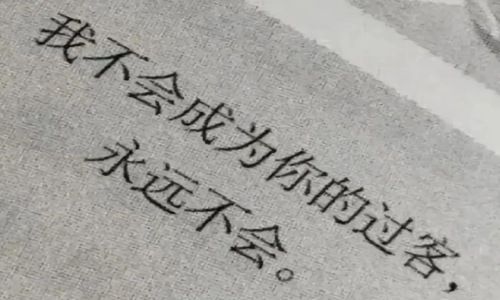 我不会成为你的过客，
永远不会。